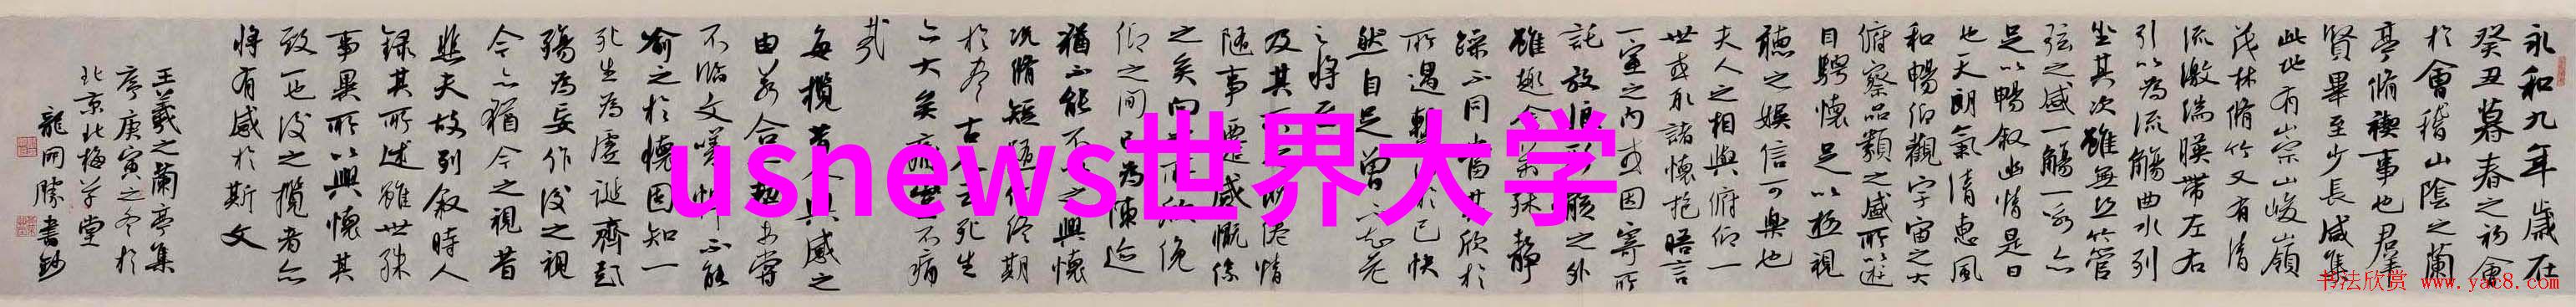 永和九年歲在
癸丑暮春之初會
於會稽山陰之蘭
亭脩禊事也羣
賢畢至少長咸集
此地有崇山峻嶺
茂林脩竹又有清
流激湍暎帶左右
引以為流觴曲水列
坐其次雖無絲竹管
弦之盛一觴一詠亦
足以暢敘幽情是日
也天朗氣清惠風
和暢仰觀宇宙之大
俯察品類之盛所以遊
目騁懷足以極視
聽之娛信可樂也
夫人之相與俯仰一
世或取諸懷抱晤言
一室之內或因寄所
託放浪形骸之外
雖趣舍萬殊靜
躁不同當其欣於
所遇暫得於己快
然自足曾不知老
之將至
及其所之既倦情
隨事遷感慨係
之矣向之所欣俛
仰之間已為陳迹
猶不能不以之興懷
況脩短隨化終期
於盡古人云死生
亦大矣豈不痛
哉
每攬昔人興感之
由若合一契未嘗
不臨文嗟悼不能
喻之於懷固知一
死生為虛誕齊彭
殤為妄作後之視
今亦猶今之視昔
悲夫故列敘時人
錄其所述雖世殊
事異所以興懷其
致一也後之攬者亦
將有感於斯文
王羲之蘭亭集
序庚寅之冬於
北京北梅草堂
龍開勝書鈔
usnews世界大学
书法欣赏 www.yac8.com